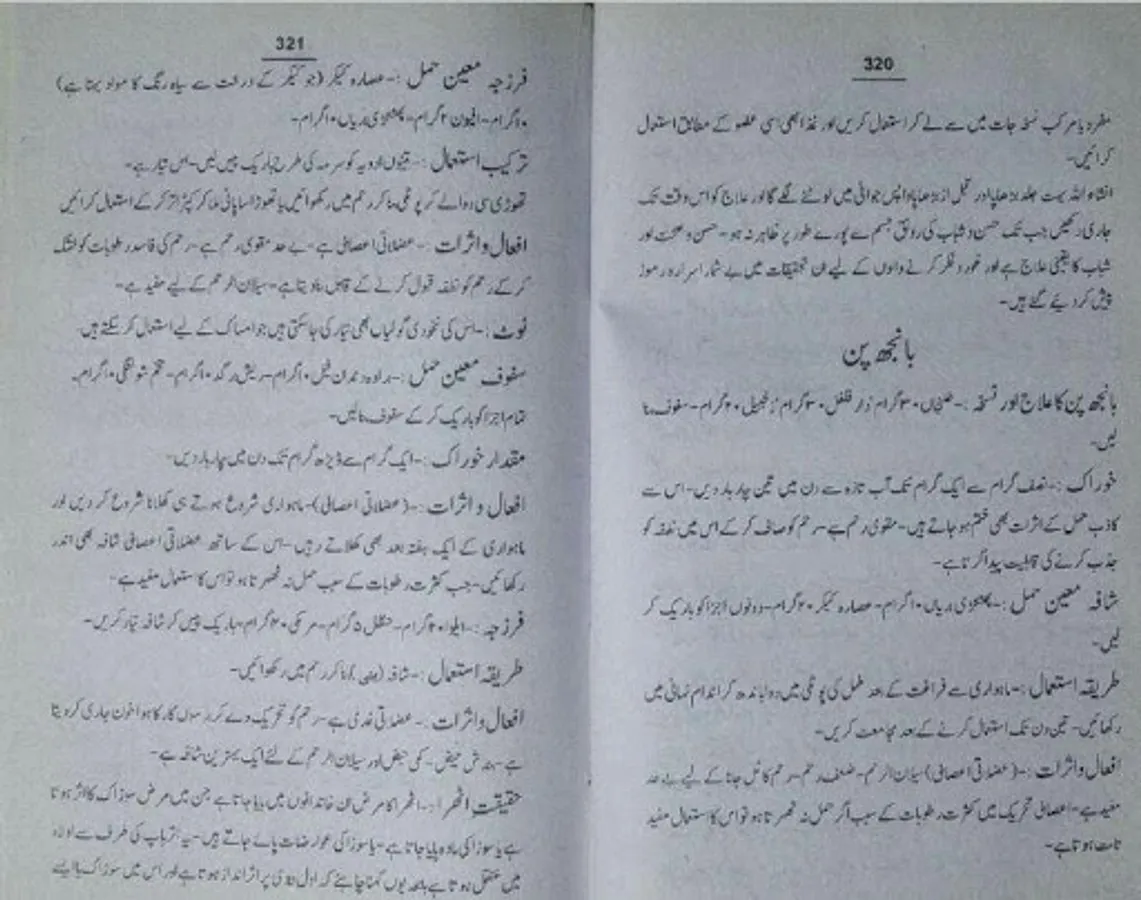 320
مفرد یا مرکب نسخہ جات میں سے لے کر استعمال کریں اور غذا بھی اسی عضو کے مطابق استعمال
کرائیں۔
انشاء اللہ بہت جلد بڑھاپا اور قبل از بڑھاپا واپس جوانی میں لوٹنے لگے گا اور علاج کو اس وقت تک
جاری رکھیں جب تک حسن و شباب کی رونق جسم سے پورے طور پر ظاہر نہ ہو۔ حسن و صحت اور
شباب کا یقینی علاج ہے اور غور و فکر کرنے والوں کے لیے ان تحقیقات میں بے شمار اسرار و رموز
پیش کر دیئے گئے ہیں۔
بانجھ پن
بانجھ پن کا علاج اور نسخہ :۔ ۳۰گرام دار فلفل ۳۰گرام زنجبیل ۴۰گرام۔ سفوف بنا
لیں۔
خوراک :۔ نصف گرام سے ایک گرام تک آب تازہ سے دن میں تین چار بار دیں۔ اس سے
کاذب حمل کے اثرات بھی ختم ہو جاتے ہیں۔ مقوی رحم ہے۔ رحم کو صاف کر کے اس میں نطفہ کو
جذب کرنے کی قابلیت پیدا کرتا ہے۔
شافہ معین حمل :۔ پھٹکڑی بریاں ۱۰گرام۔ عصارہ کیکر ۲۰گرام۔ دونوں اجزا کو باریک کر
لیں۔
طریقہ استعمال :۔ ماہواری سے فراغت کے بعد ململ کی پوٹلی میں دوا باندھ کر اندام نہانی میں
رکھائیں۔ تین دن تک استعمال کرنے کے بعد مجامعت کریں۔
افعال و اثرات :۔ (عضلاتی اعصابی) سیلان الرحم۔ ضعف رحم۔ رحم کا ٹل جانا کے لیے بے حد
مفید ہے۔ اعصابی تحریک میں کثرت رطوبات کے سبب اگر حمل نہ ٹھہرتا ہو تو اس کا استعمال مفید
ثابت ہوتا ہے۔
321
فرزجہ معین حمل :۔ عصارہ کیکر (جو کیکر کے درخت سے سیاہ رنگ کا مواد بہتا ہے)
۱۰گرام۔ افیون ۲گرام۔ پھٹکڑی بریاں ۱۰گرام۔
ترکیب استعمال :۔ تینوں ادویہ کو سرمہ کی طرح باریک پیس لیں۔ بس تیار ہے۔
تھوڑی سی دوا لے کر پوٹلی بنا کر رحم میں رکھوائیں یا تھوڑا سا پانی ملا کر کپڑا تر کر کے استعمال کرائیں
افعال و اثرات :۔ عضلاتی اعصابی ہے۔ بے حد مقوی رحم ہے۔ رحم کی فاسد رطوبات کو خشک
کر کے رحم کو نطفہ قبول کرنے کے قابل بنا دیتا ہے۔ سیلان الرحم کے لیے مفید ہے۔
نوٹ :۔ اس کی نخودی گولیاں بھی تیار کی جا سکتی ہیں جو امساک کے لیے استعمال کر سکتے ہیں۔
سفوف معین حمل :۔ برادہ دندان فیل ۱۰گرام۔ ریش برگد ۱۰گرام۔ تخم شولنگی ۱۰گرام۔
تمام اجزا کو باریک کر کے سفوف بنا لیں۔
مقدار خوراک :۔ ایک گرام سے ڈیڑھ گرام تک دن میں چار بار دیں۔
افعال و اثرات :۔ (عضلاتی اعصابی)۔ ماہواری شروع ہوتے ہی کھلانا شروع کر دیں اور
ماہواری کے ایک ہفتہ بعد بھی کھلاتے رہیں۔ اس کے ساتھ عضلاتی اعصابی شافہ بھی اندر
رکھائیں۔ جب کثرت رطوبات کے سبب حمل نہ ٹھہرتا ہو تو اس کا استعمال مفید ہے۔
فرزجہ :۔ ایلوا ۲۰گرام۔ حنظل ۵گرام۔ مرمکی ۲۰گرام۔ باریک پیس کر شافہ تیار کریں۔
طریقہ استعمال :۔ شافہ (بتی) بنا کر رحم میں رکھوائیں۔
افعال و اثرات :۔ عضلاتی غدی ہے۔ رحم کو تحریک دے کر برسوں کا رکا ہوا خون جاری کر دیتا
ہے۔ بندش حیض۔ کمی حیض اور سیلان الرحم کے لئے ایک بہترین شافہ ہے۔
حقیقت اٹھرا :۔ اٹھرا کا مرض ان خاندانوں میں پایا جاتا ہے جن میں مرض سوزاک کا اثر ہوتا
ہے یا سوزاکی مادہ پایا جاتا ہے۔ یا سوزاکی عوارضات پائے جاتے ہیں۔ یہ اثر باپ کی طرف سے اولاد
میں منتقل ہوتا ہے بلکہ یوں کہنا چاہئے کہ اول بیوی پر اثر انداز ہوتا ہے اور اس میں سوزاک یا ایسے